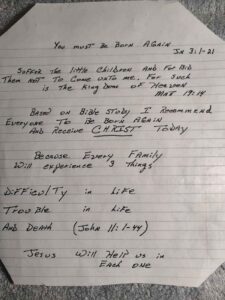 You must be Born Again
Jn 3:1-21
Suffer the little Children and Forbid
Them Not To Come unto me. For Such
is the King Dome of Heaven
Mat 19:14
Based on Bible Study I Recommend
Everyone To Be Born Again
And Receive CHRIST Today
Because Every Family
Will experience 3 Things
Difficulty in Life
Trouble in Life
And Death (John 11:1-44)
Jesus Will Help us in
Each one